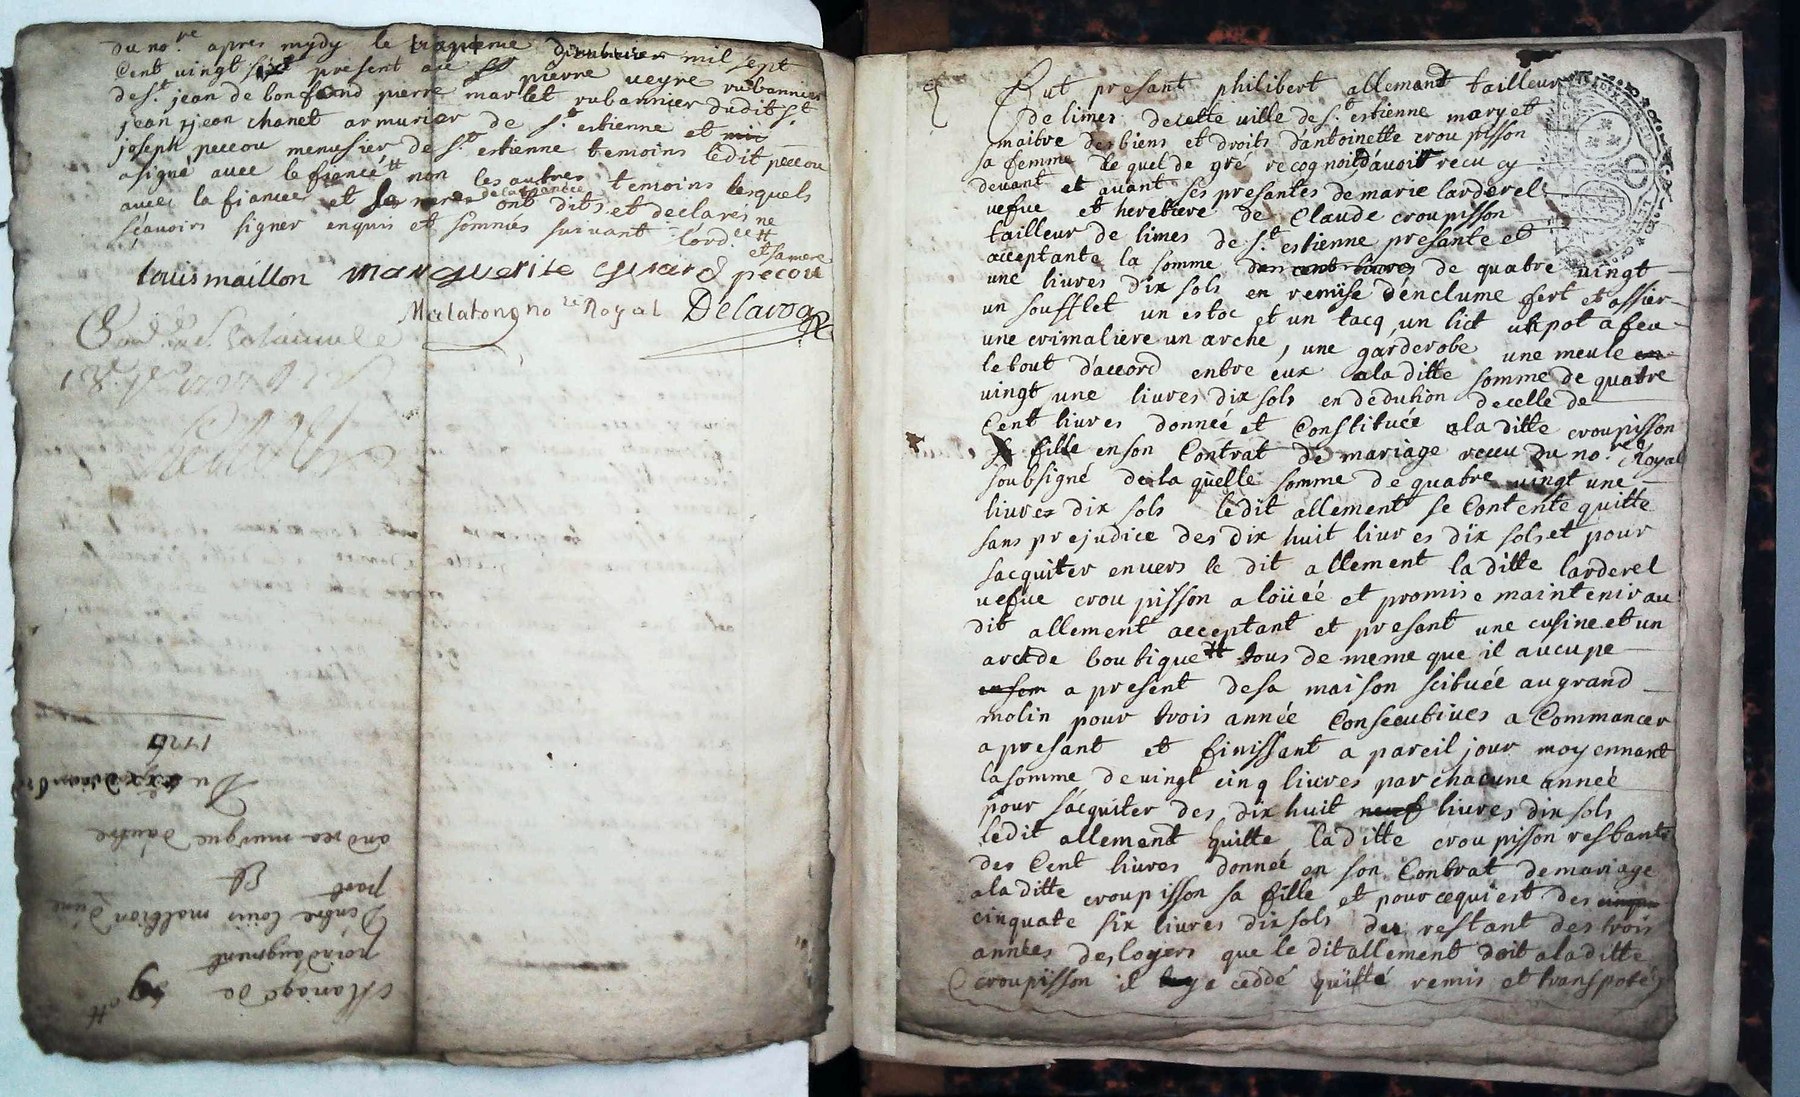 du no.re apres mydy le dixieme decembre mil sept
Cent vingt six present ave pierre veyre rubannier
de s.t jean de bonfond pierre marlet rubannier dudit s.t
jean jean chanet armurier de s.t estienne et
joseph peccou menusier de s.t estienne temoins ledit peccou
a signé avec le fiancé non les autres temoins lesquels
avec la fiancee et de la fiancée ont dits et declarés ne
scavoirs signer enquis et sommés suivant lord.ce
et sa mere
Louis maillon marguerite girard pecou
Malabong no.re Royal Delaroa
Mariage de
noir daugment
Dentre loüis mallion d'une
part Et
andrea murigue dautre
Du
1726
Fut presant philibert allemant tailleur
de limes de cette ville de s.t estienne mary et
maitre des biens et droits d'antoinette croupisson
sa femme lequel de gré recognoit d'avoir recu cy
devant et avant ses presantes de marie larderel
vefve et heretiere de Claude croupisson
tailleur de limes de s.t estienne presante et
acceptante la somme des cent livres de quatre vingt
une livres dix sols en remise d'enclume fert et assier
un soufflet un estoc et un tacq, un lict un pot a feu
une crimaliere un arche, une garderobe une meule en
le tout d'accord entre eux a la ditte somme de quatre
vingt une livres dix sols en dedution de celle de
Cent livres donneé et Constituée a la ditte croupisson
sa fille en son Contrat de mariage receu du no.re Royal
soubsigné de la qüelle somme de quatre vingt une
livres dix sols ledit allement se Contente quitte
sans prejudice des dix huit livres dix sols et pour
sacquiter envers le dit allement la ditte larderel
vefve croupisson a loüéé et promise maintenir au
dit allement acceptant et presant une cusine et un
arc de boutique tous de meme que il aucupe
ensem a present de sa maison scituée au grand
molin pour trois année Consecutives a Commancer
a presant et finissant a pareil jour moyennant
la somme de vingt cinq livres par chacune année
pour sacquiter des dix huit neuf livres dix sols
ledit allement quitte la ditte croupisson restante
des Cent livres donneé en son Contrat de mariage
a la ditte croupisson sa fille et pour ce qui est des
cinquate six livres dix sols du restant des trois
annèes des loyers que le dit allement doit a la ditte
croupisson il luy e ceddé quitté remis et transporté